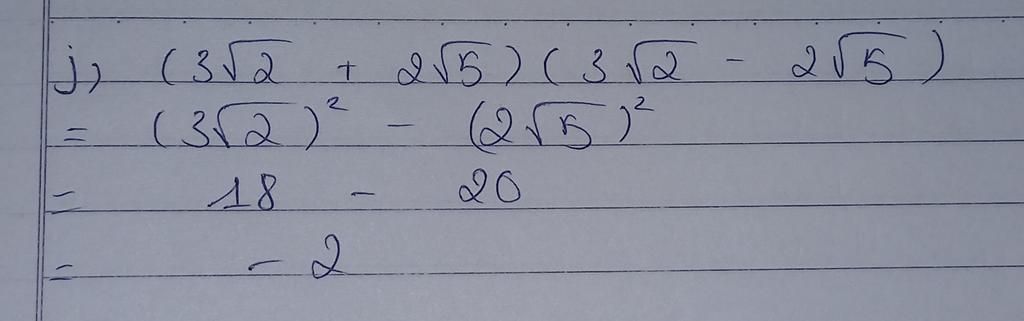 j, (3√2 + 2√5)(3√2 - 2√5)
= (3√2)² - (2√5)²
= 18 - 20
= - 2